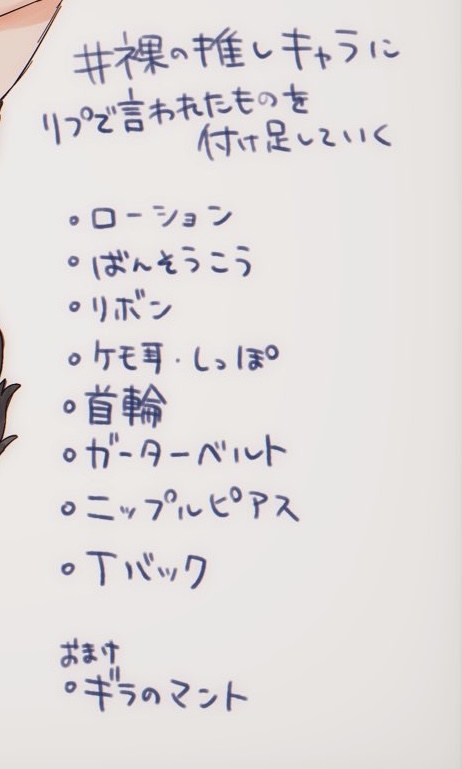 #裸の推しキャラに
リプで言われたものを
付け足していく
。ローション
。ばんそうこう
。リボン
。ケモ耳・しっぽ
。首輪
。ガーターベルト
。ニップルピアス
。Tバック
おまけ
。ギラのマント